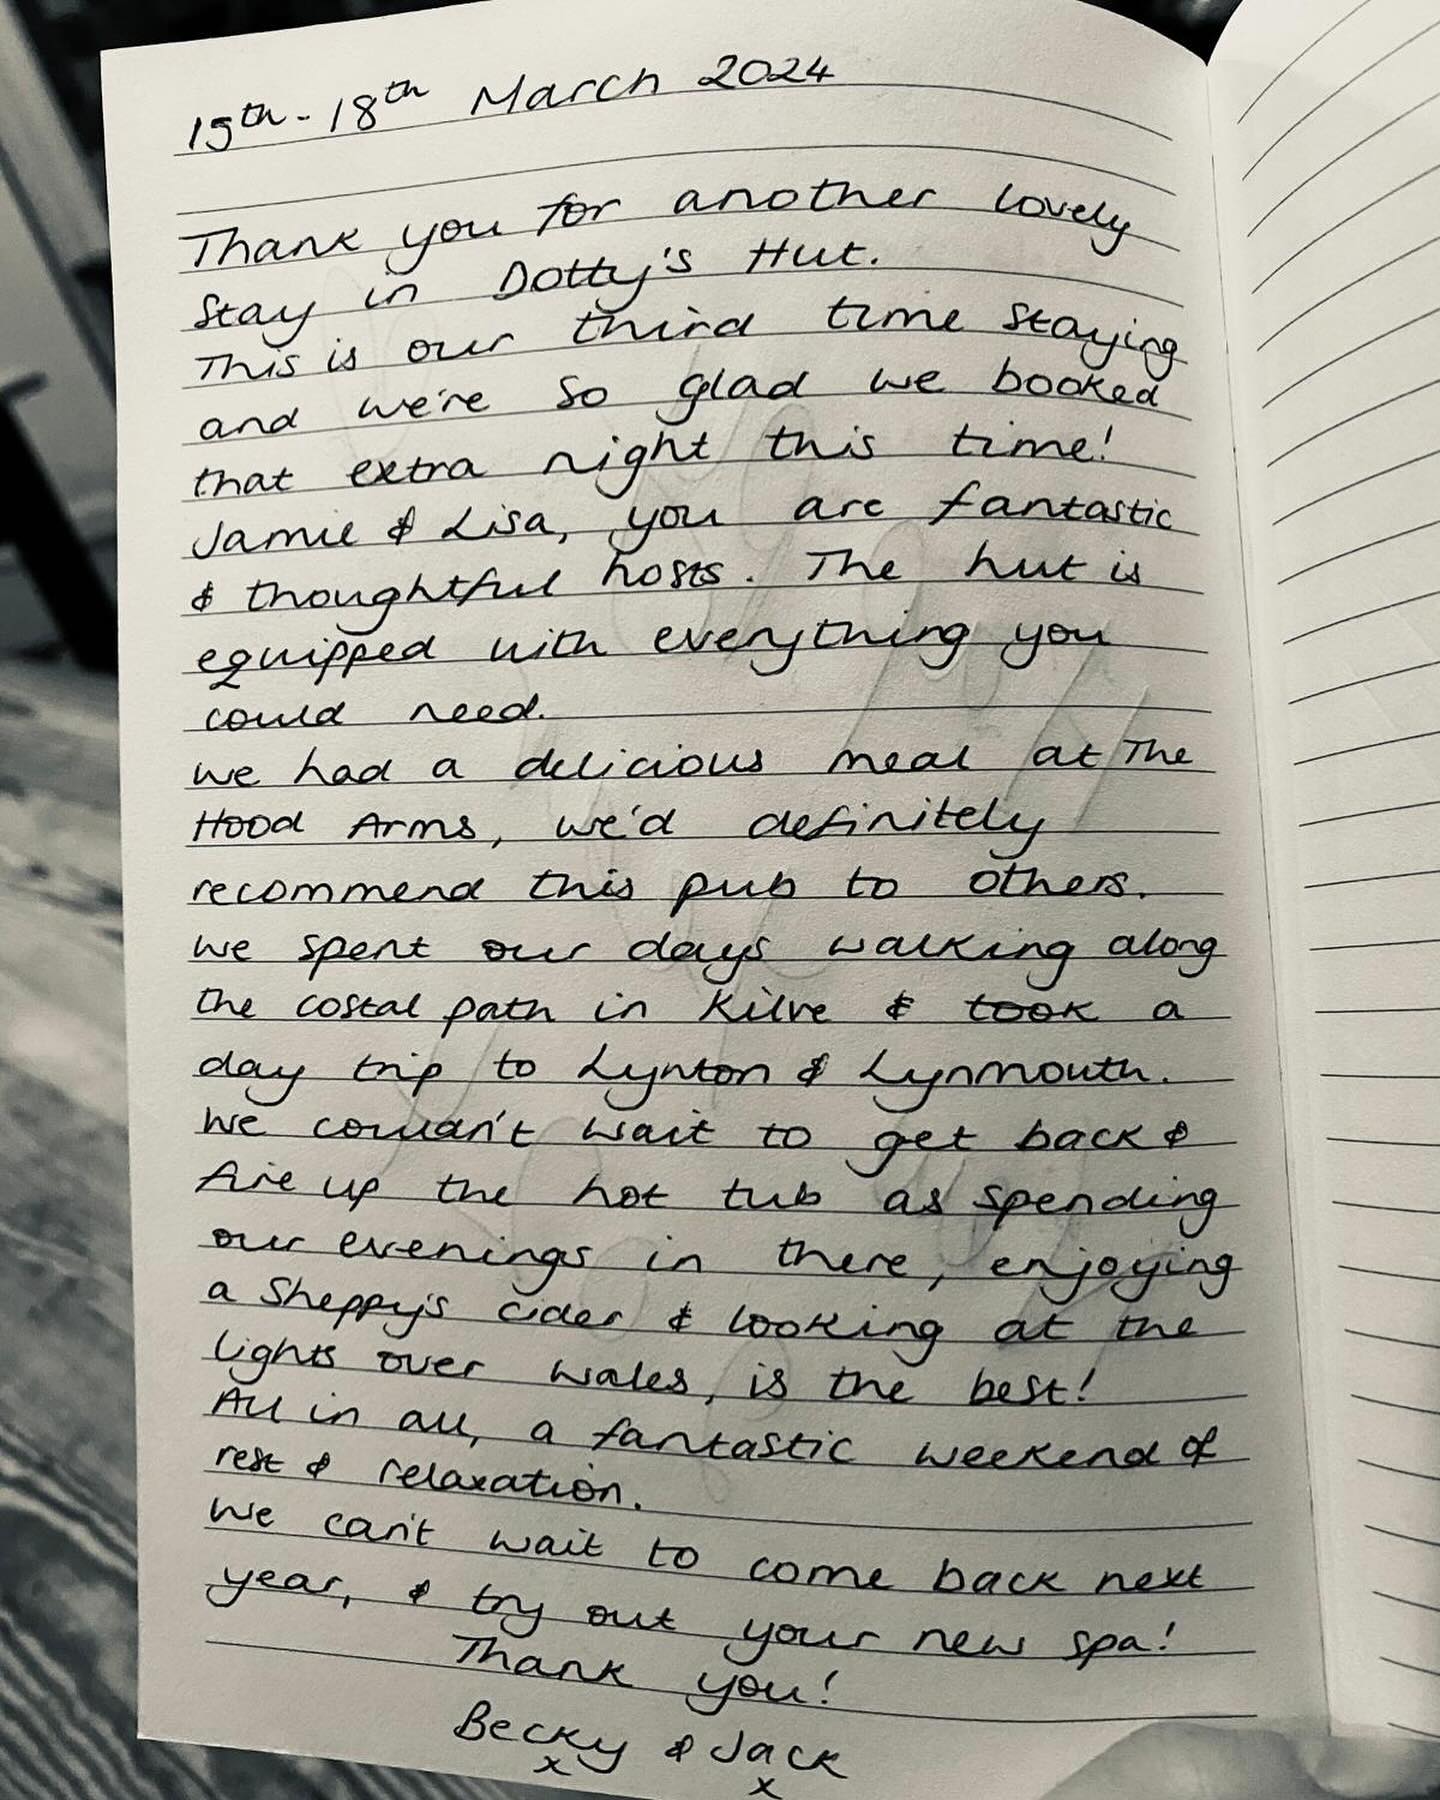 15th - 18th March 2024
Thank you for another lovely
stay in Dotty's Hut.
This is our third time staying
and we're so glad we booked
that extra night this time!
Jamie & Lisa, you are fantastic
& thoughtful hosts. The hut is
equipped with everything you
could need.
We had a delicious meal at The
Hood Arms, we'd definitely
recommend this pub to others.
We spent our days walking along
the costal path in Kilve & took a
day trip to Lynton & Lynmouth.
We couldn't wait to get back &
fire up the hot tub as spending
our evenings in there, enjoying
a Sheppy's cider & looking at the
lights over Wales, is the best!
All in all, a fantastic weekend of
rest & relaxation.
We can't wait to come back next
year, & try out your new spa!
Thank you!
Becky & Jack
x x